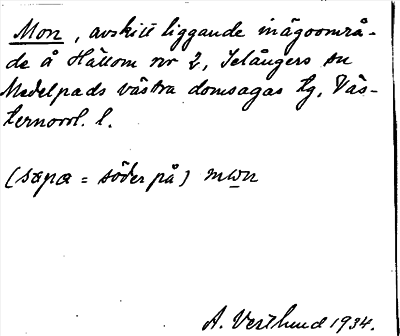 Mon, avskilt liggande inägoområ-
de å Hällom nr 2, Selångers sn
Medelpads västra domsagas tg, Väs-
ternorrl. l.
(sɶpɶ = söder på) mɯn
A. Vestlund 1934.